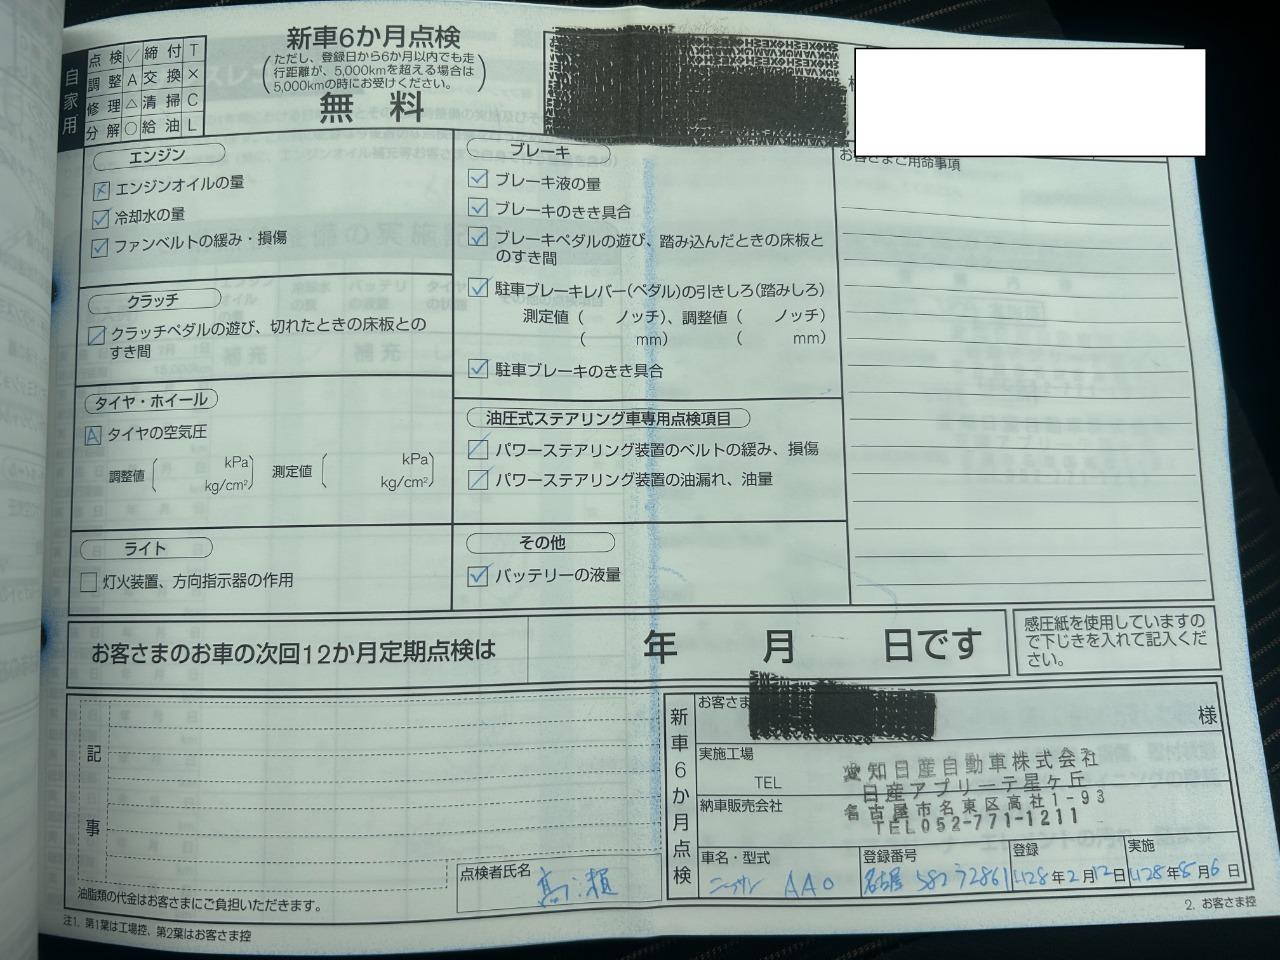 自家用
点検 ✓ 締付 T
調整 A 交換 ×
修理 △ 清掃 C
分解 ○ 給油 L
新車6か月点検
(ただし、登録日から6か月以内でも走
行距離が、5,000kmを超える場合は
5,000kmの時にお受けください。)
無料
エンジン
エンジンオイルの量
冷却水の量
ファンベルトの緩み・損傷
クラッチ
クラッチペダルの遊び、切れたときの床板との
すき間
タイヤ・ホイール
A タイヤの空気圧
調整値 ( kPa kg/cm²) 測定値 ( kPa kg/cm²)
ライト
灯火装置、方向指示器の作用
ブレーキ
ブレーキ液の量
ブレーキのきき具合
ブレーキペダルの遊び、踏み込んだときの床板と
のすき間
駐車ブレーキレバー(ペダル)の引きしろ(踏みしろ)
測定値( ノッチ)、調整値( ノッチ)
( mm) ( mm)
駐車ブレーキのきき具合
油圧式ステアリング車専用点検項目
パワーステアリング装置のベルトの緩み、損傷
パワーステアリング装置の油漏れ、油量
その他
バッテリーの液量
お客さまご用命事項
お客さまのお車の次回12か月定期点検は 年 月 日です
感圧紙を使用していますの
で下じきを入れて記入くだ
さい。
記事
油脂類の代金はお客さまにご負担いただきます。
点検者氏名
高瀬
新車6か月点検
お客さま 様
実施工場
TEL
納車販売会社
愛知日産自動車株式会社
日産アプリーテ星ヶ丘
名古屋市名東区高社1-93
TEL052-771-1211
車名・型式 登録番号 登録 実施
ニッサン AAO 名古屋 582 72861 H28年2月12日 H28年8月6日
注1. 第1葉は工場控、第2葉はお客さま控
2. お客さま控